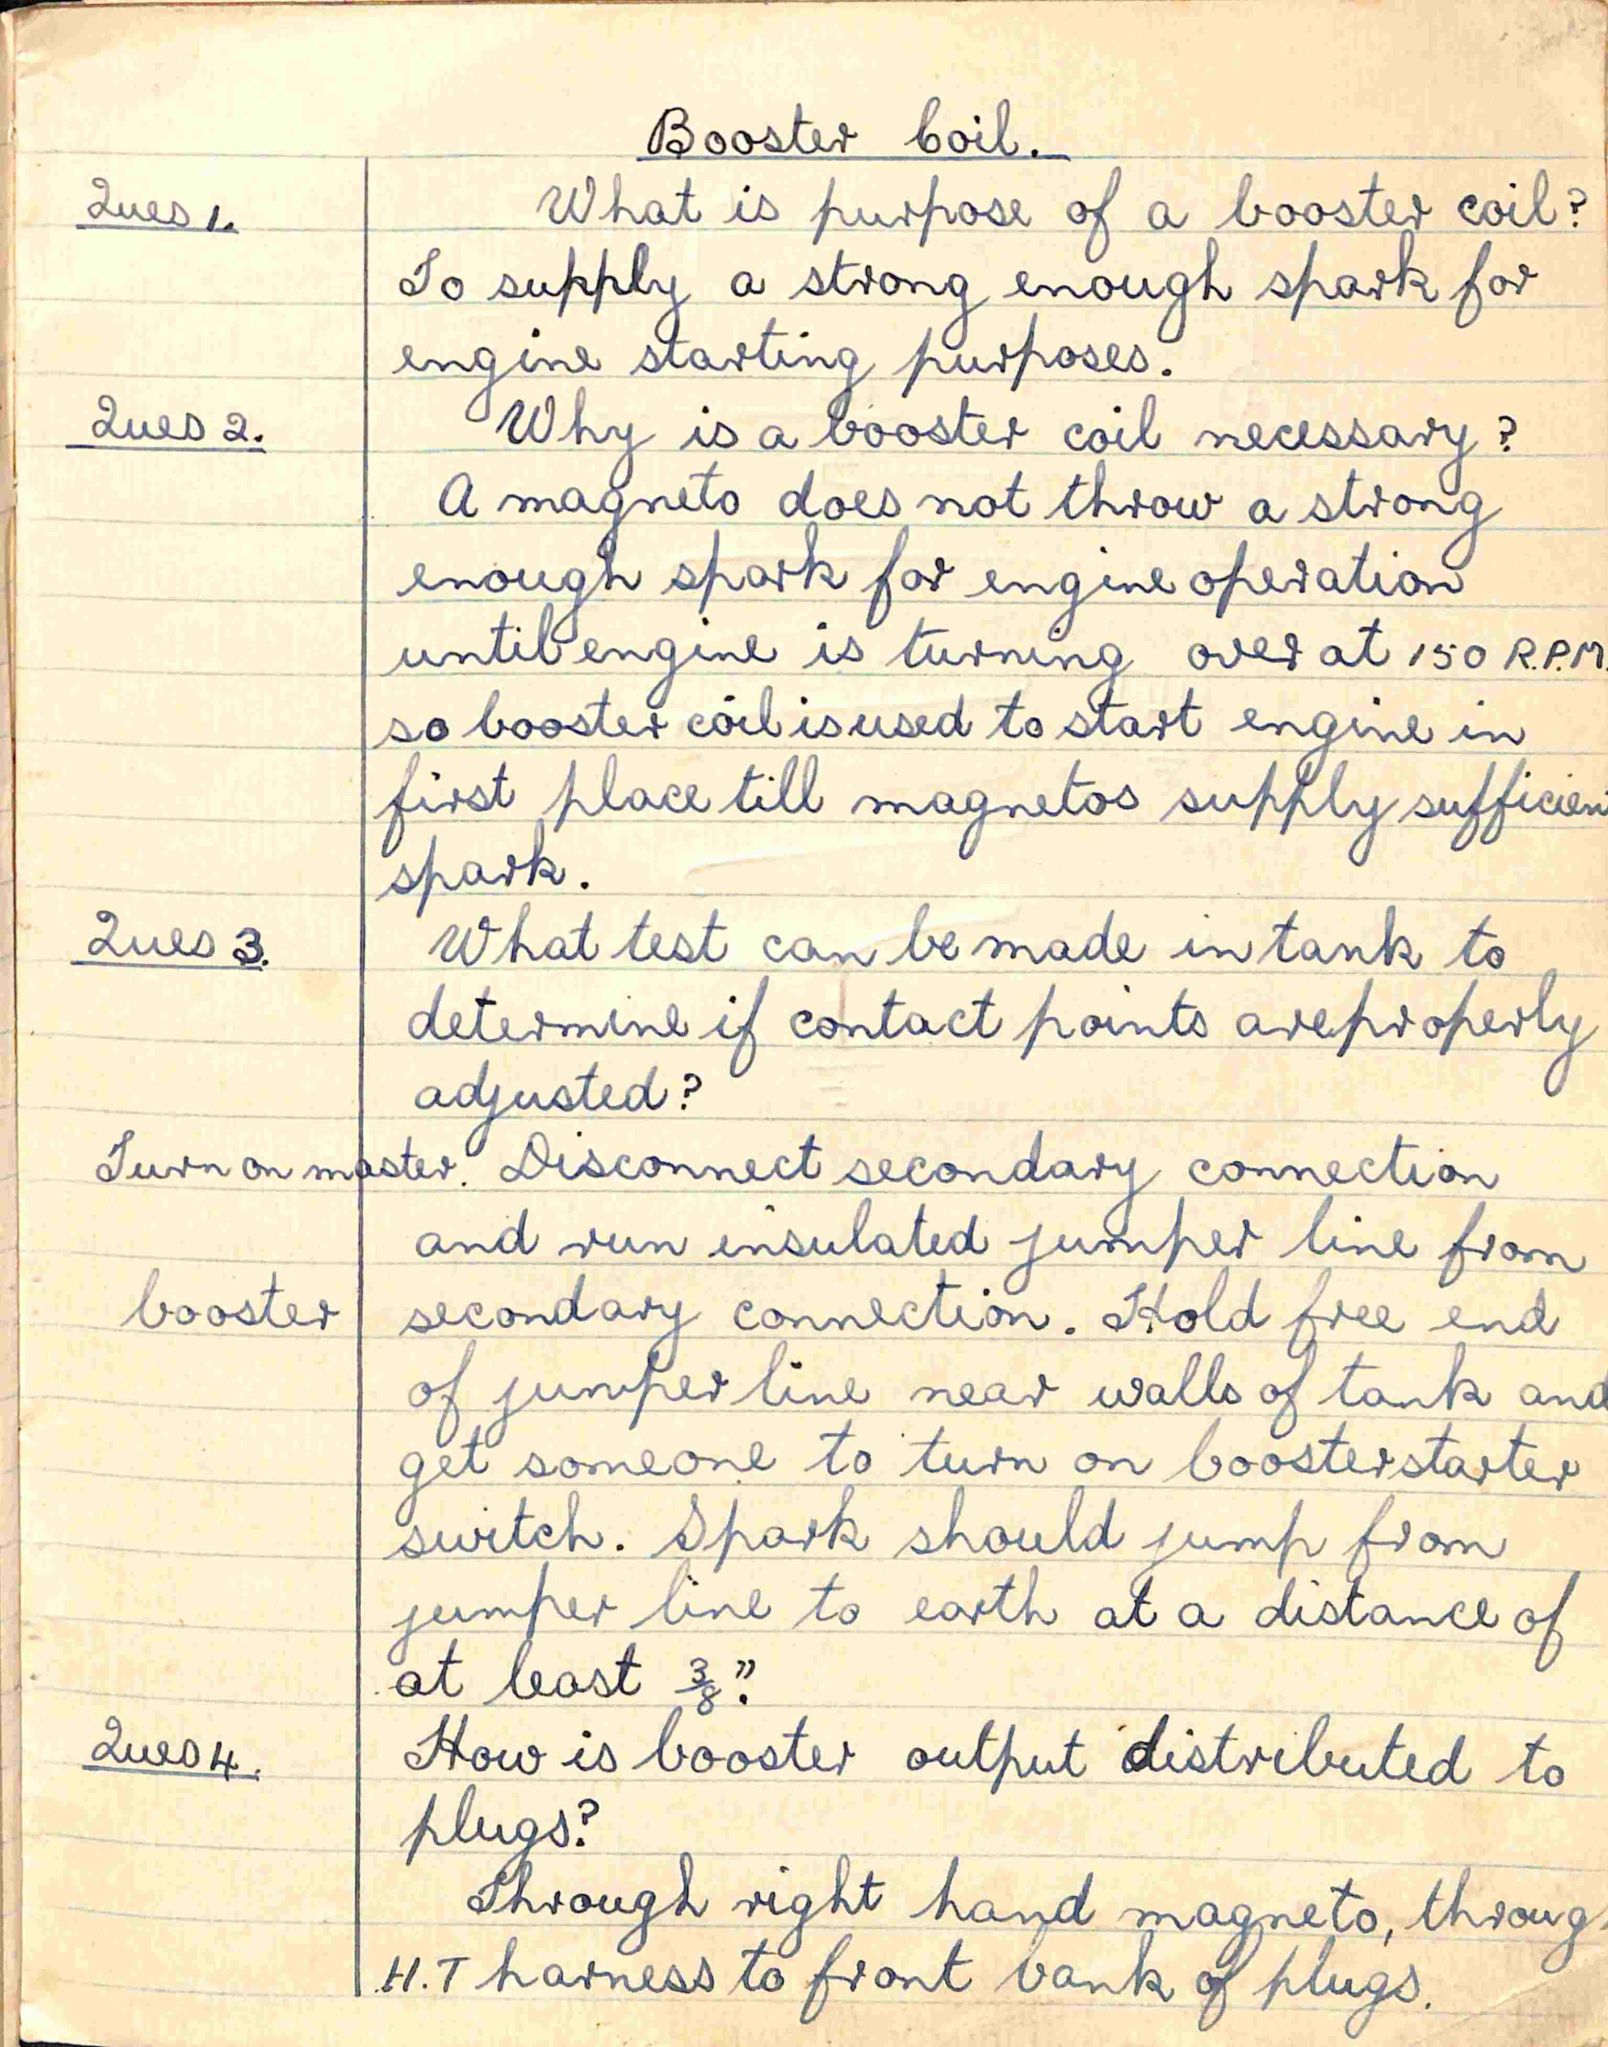 Booster Coil.
Ques 1. What is purpose of a booster coil?
To supply a strong enough spark for
engine starting purposes.
Ques 2. Why is a booster coil necessary?
A magneto does not throw a strong
enough spark for engine operation
until engine is turning over at 150 R.P.M.
so booster coil is used to start engine in
first place till magnetos supply sufficien
spark.
Ques 3. What test can be made in tank to
determine if contact points are properly
adjusted?
Turn on master. Disconnect secondary connection
and run insulated jumper line from
booster secondary connection. Hold free end
of jumper line near walls of tank and
get someone to turn on booster starter
switch. Spark should jump from
jumper line to earth at a distance of
at least 3/8".
Ques 4. How is booster output distributed to
plugs?
Through right hand magneto, throug
H.T harness to front bank of plugs.